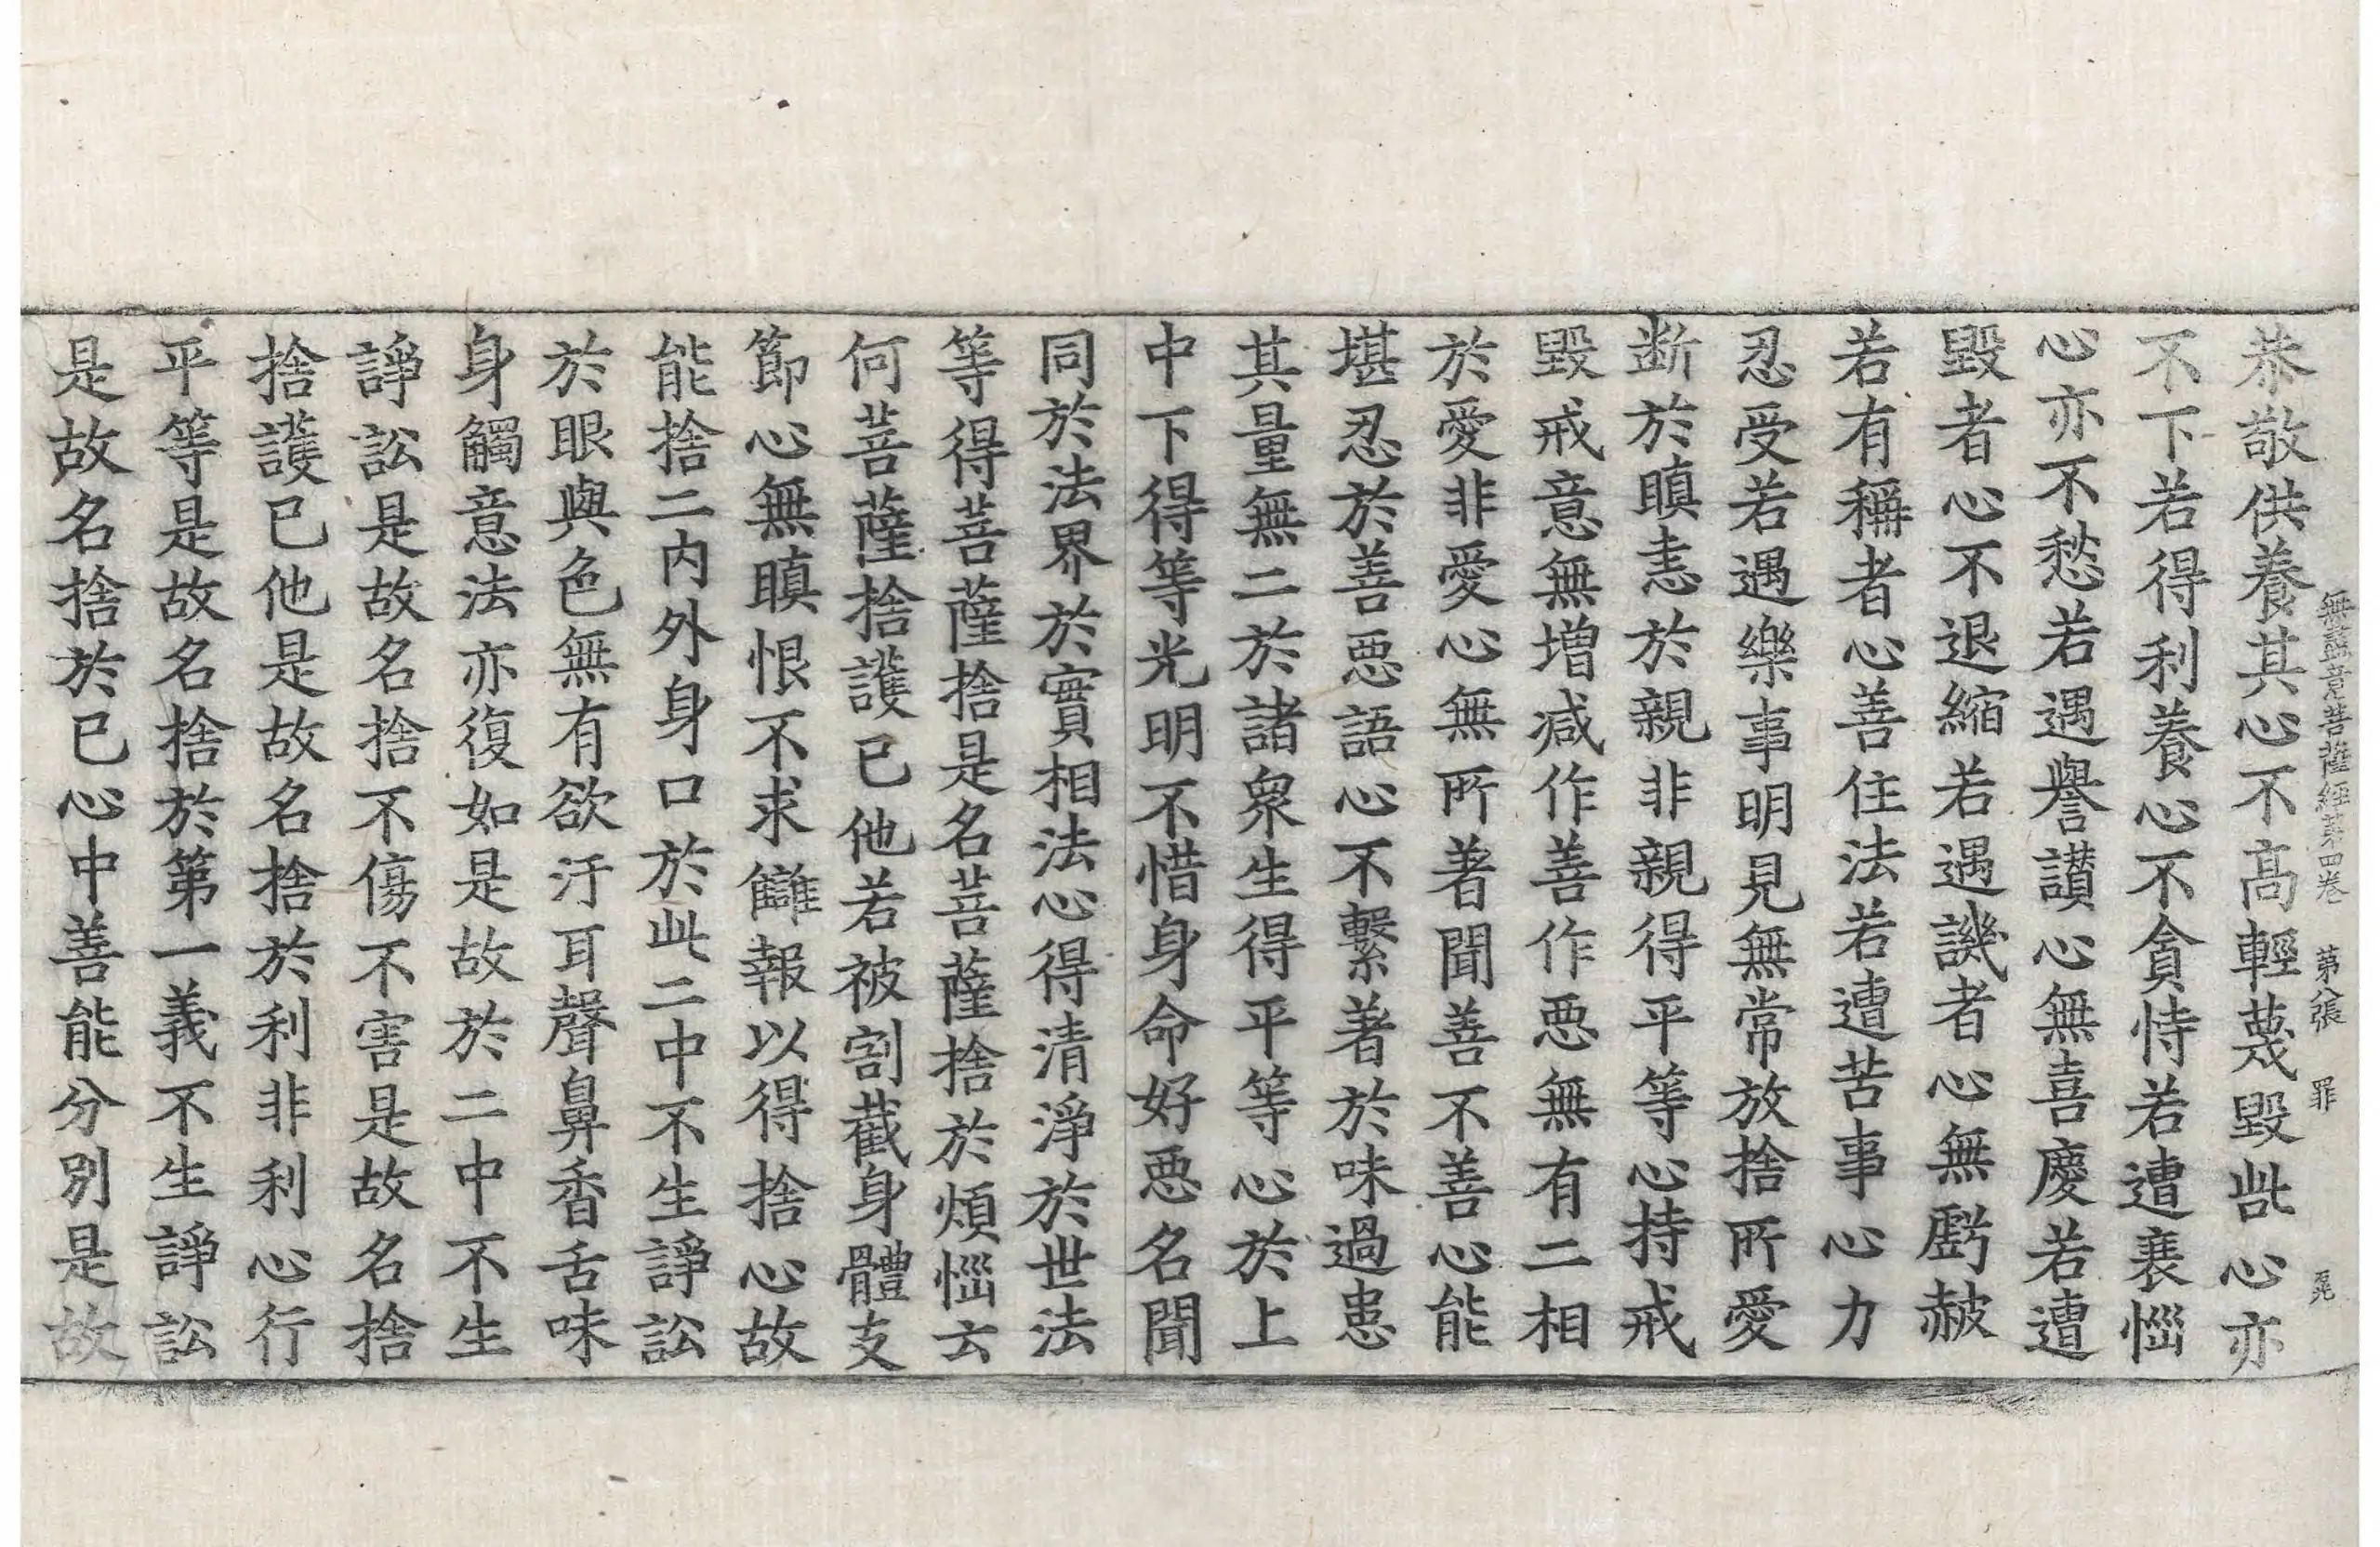 無盡意菩薩経第四卷 第八張 罪
恭敬供養其心不高輕蔑毀呰心亦
不下若得利養心不貪恃若遭衰惱
心亦不愁若遇譽讃心無喜慶若遭
毀者心不退縮若遇譏者心無虧赦
若有稱者心善住法若遭苦事心力
忍受若遇樂事明見無常放捨所愛
断於瞋恚於親非親得平等心持戒
毀戒意無増减作善作惡無有二相
於愛非愛心無所著聞善不善心能
堪忍於善惡語心不繫著於味過患
其量無二於諸衆生得平等心於上
中下得等光明不惜身命好惡名聞
同於法界於實相法心得清淨於世法
等得菩薩捨是名菩薩捨於煩惱云
何菩薩捨護已他若被割截身體支
節心無瞋恨不求讎報以得捨心故
能捨二内外身口於此二中不生諍訟
於眼與色無有欲汙耳聲鼻香舌味
身觸意法亦復如是故於二中不生
諍訟是故名捨不傷不害是故名捨
捨護已他是故名捨於利非利心行
平等是故名捨於第一義不生諍訟
是故名捨於已心中善能分别是故